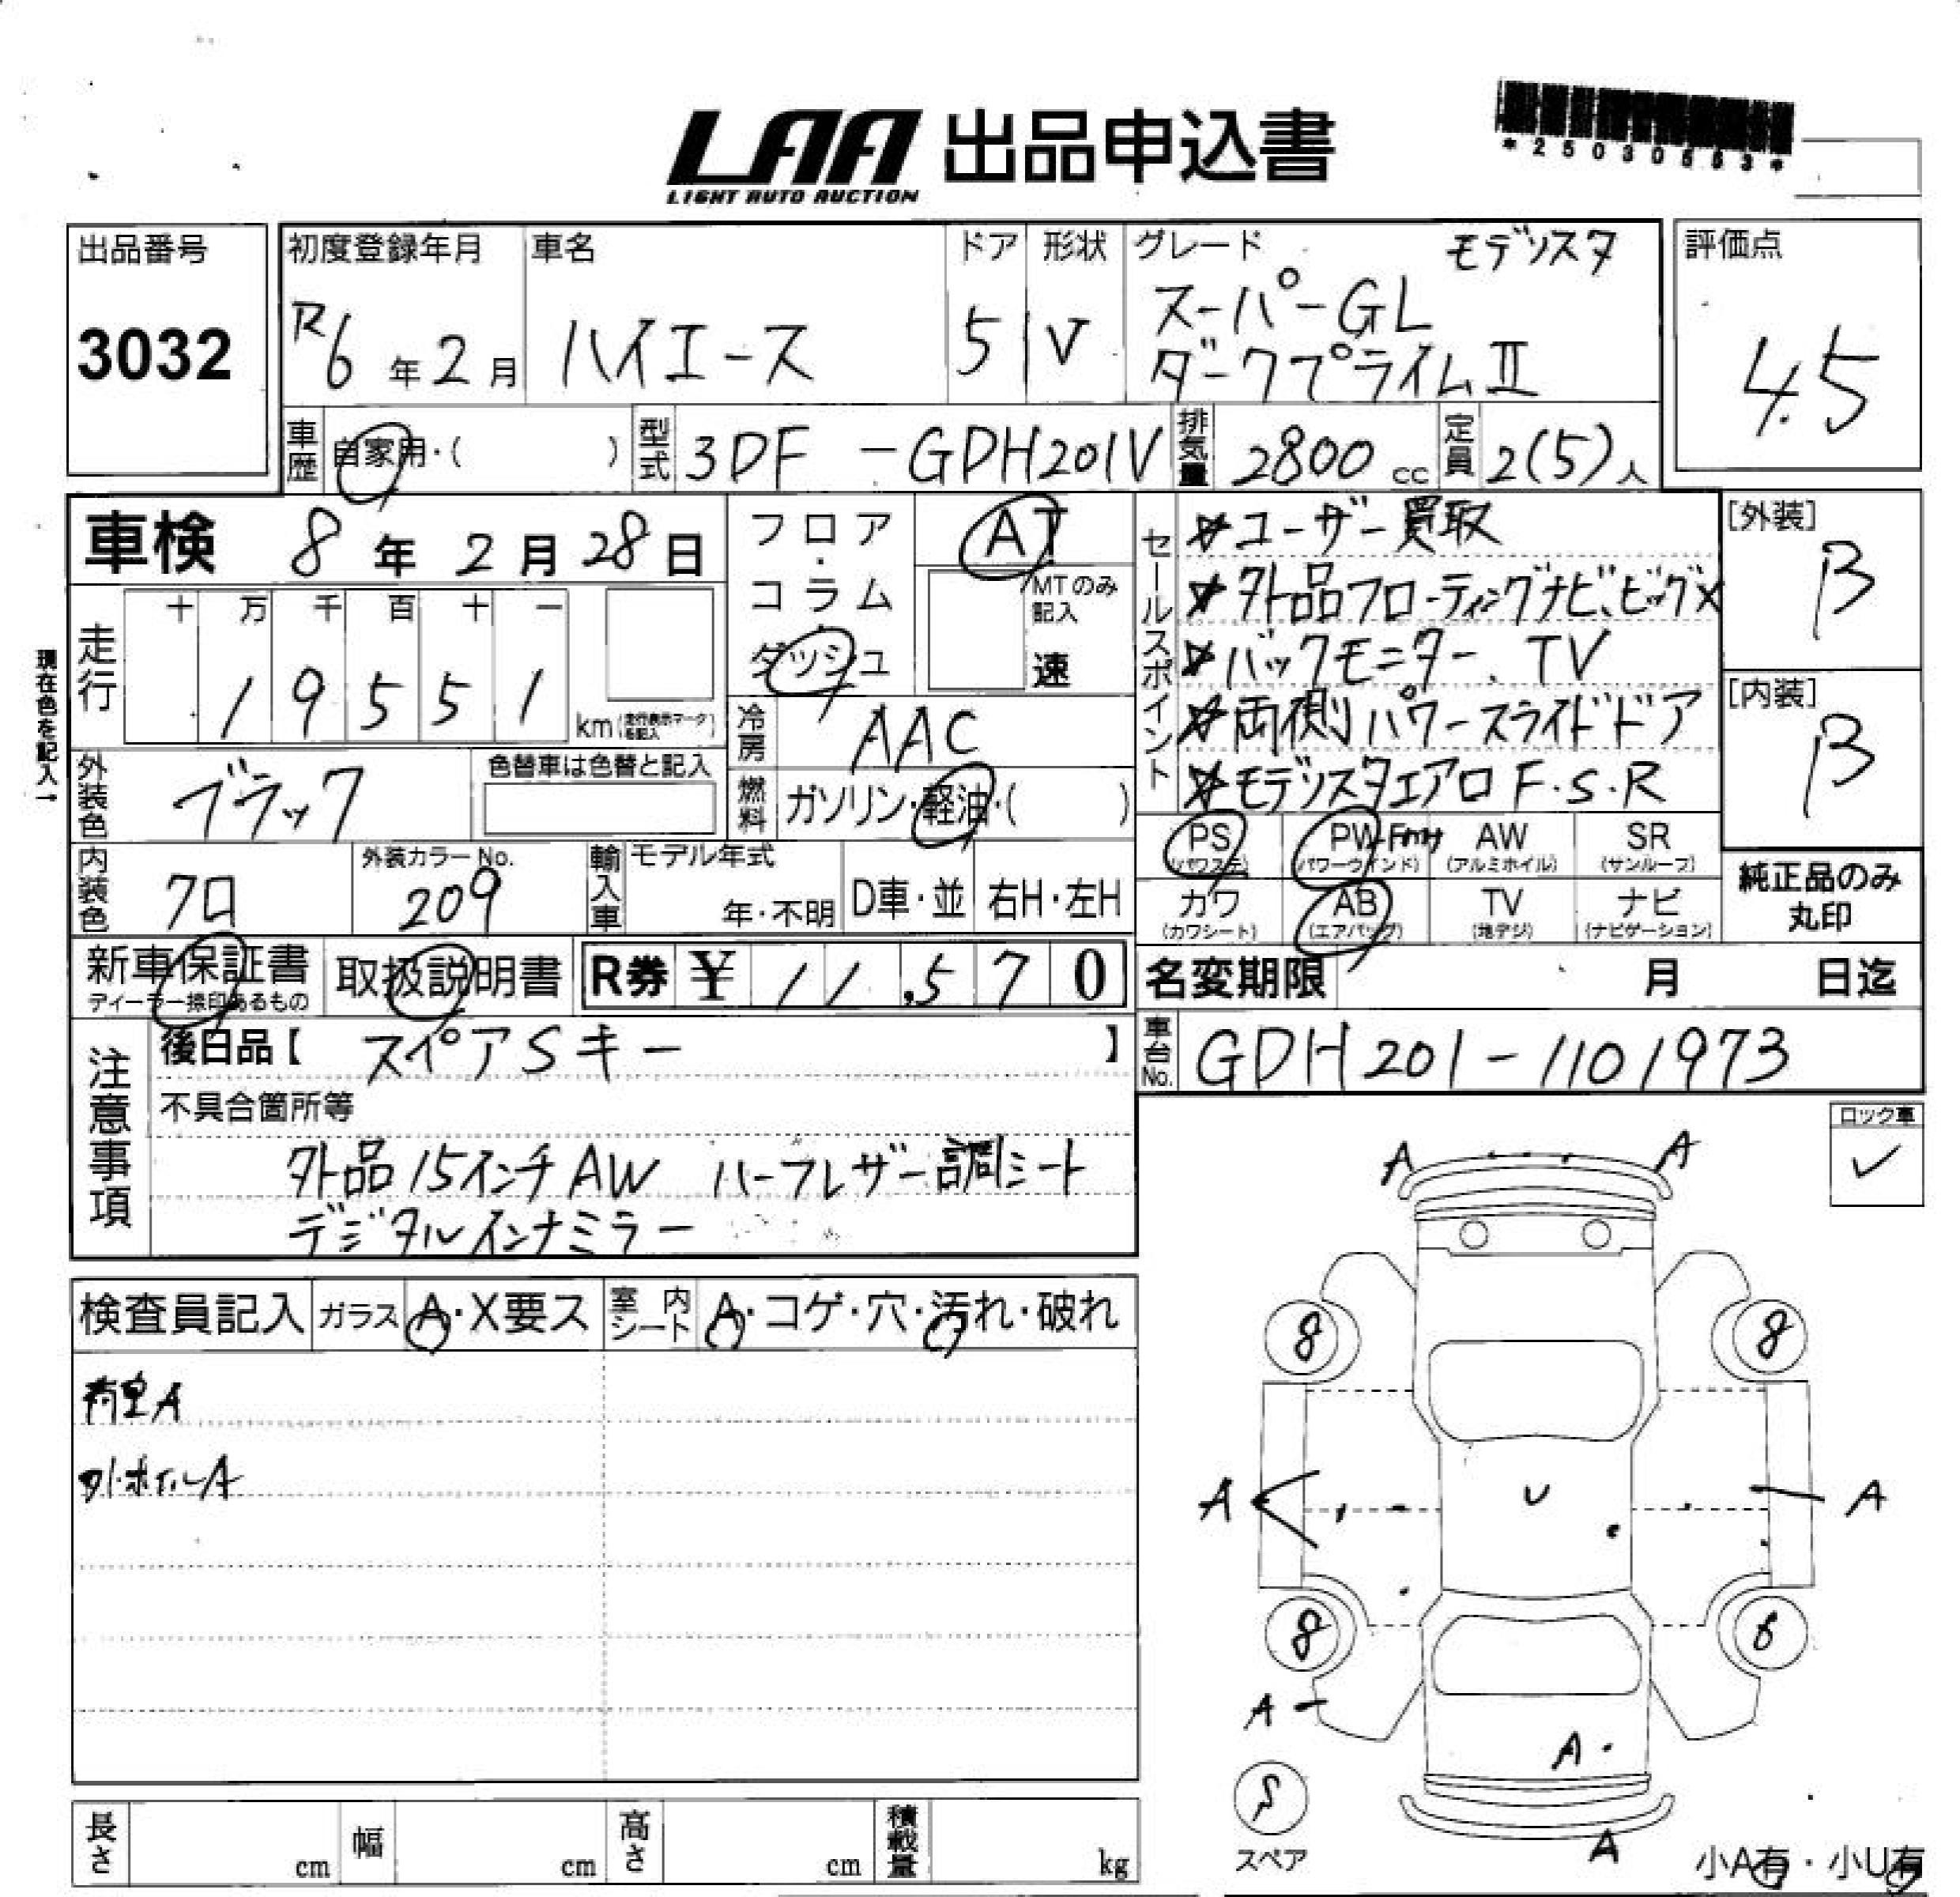 LAA 出品申込書
LIGHT AUTO AUCTION
*25030553*
出品番号
3032
初度登録年月
R6年2月
車名
ハイエース
ドア
5
形状
V
グレード
モデリスタ
スーパーGL
ダークプライムⅡ
評価点
4.5
車歴
自家用・( )
型式
3DF-GDH201V
排気量
2800cc
定員
2(5)人
車検 8年2月28日
フロア・コラム・ダッシュ
AT
MTのみ記入
速
走行
十 万 千 百 十 一
1 9 5 5 1
km(走行表示マークを記入)
現在色を記入→
冷房
AAC
外装色
ブラック
色替車は色替と記入
燃料
ガソリン・軽油・( )
内装色
クロ
外装カラーNo.
209
輸入車
モデル年式
年・不明
D車・並
右H・左H
セールスポイント
☆ユーザー買取
☆外品フローティングナビ、ビッグX
☆バックモニター、TV
☆両側パワースライドドア
☆モデリスタエアロF・S・R
[外装]
B
[内装]
B
PS
(パワステ)
PW
(パワーウインド)
AW
(アルミホイル)
SR
(サンルーフ)
カワ
(カワシート)
AB
(エアバッグ)
TV
(地デジ)
ナビ
(ナビゲーション)
純正品のみ
丸印
新車保証書
ディーラー捺印あるもの
取扱説明書
R券 ¥11,570
名変期限 月 日迄
車台No.
GDH201-1101973
注意事項
後日品【 スペアSキー 】
不具合箇所等
外品15インチAW ハーフレザー調シート
デジタルインナミラー
ロック車
✓
検査員記入
ガラス
A・X要ス
室内シート
A・コゲ・穴・汚れ・破れ
荷室A
外・ホイルA
A A
8 8
A U A
8 6
A
A
S
スペア
A
小A有・小U有
長さ cm
幅 cm
高さ cm
積載量 kg